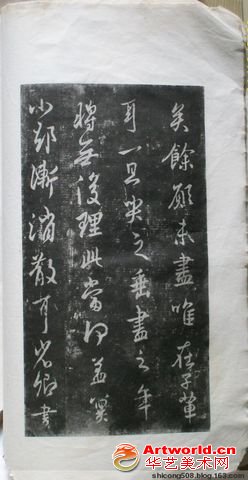 矣餘願未盡唯在子輩
耳一旦哭之垂盡之年
轉無復理此當何益冀
小却漸消散耳省卿書
Artworld.cn
华艺美术网
shicong508.blog.163.com